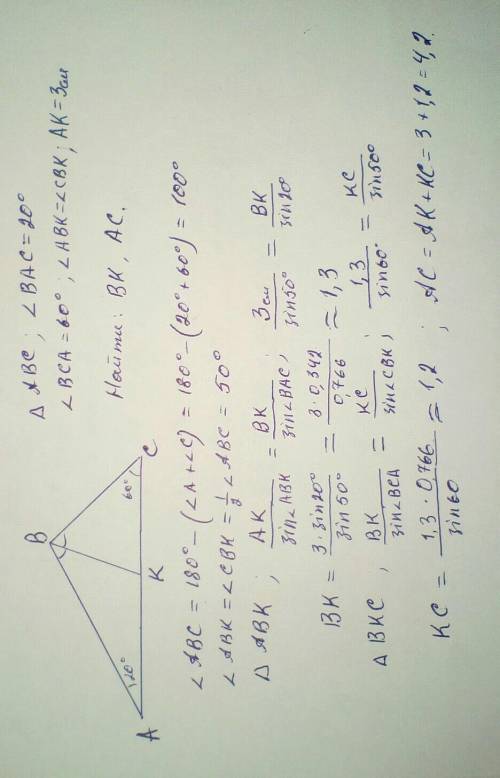 △ ABC ; ∠BAC = 20°
∠BCA = 60° ; ∠ABK = ∠CBK ; AK = 3см
Найти: BK, AC.
B
A
K
C
20°
60°
∠ABC = 180° − (∠A + ∠C) = 180° − (20° + 60°) = 100°
∠ABK = ∠CBK = 1/2 ∠ABC = 50°
△ ABK ; AK/sin∠ABK = BK/sin∠BAC ; 3см/sin50° = BK/sin20
BK = 3·sin20°/sin50° = 3·0,342/0,766 ≈ 1,3
△ BKC , BK/sin∠BCA = KC/sin∠CBK ; 1,3/sin60° = KC/sin50°
KC = 1,3·0,766/sin60 ≈ 1,2 ; AC = AK + KC = 3 + 1,2 = 4,2.